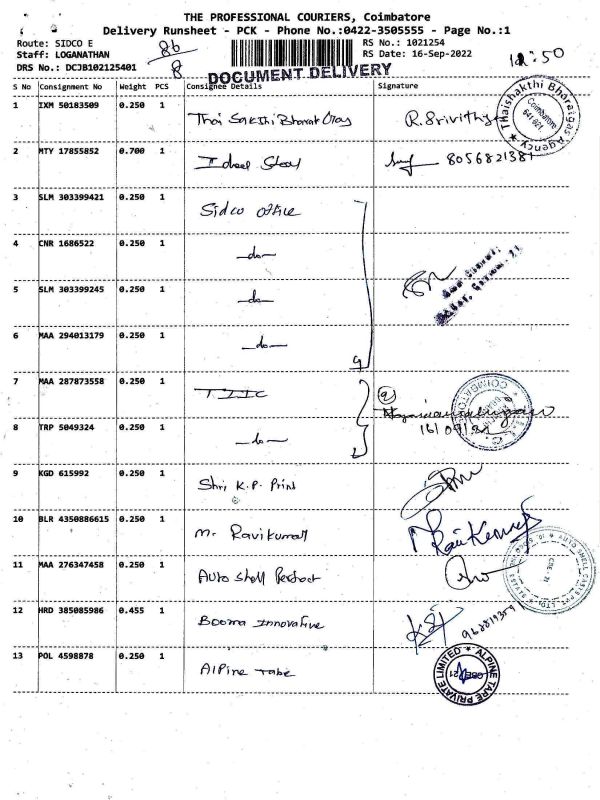 THE PROFESSIONAL COURIERS, Coimbatore
Delivery Runsheet - PCK - Phone No.:0422-3505555 - Page No.:1
Route: SIDCO E 86 RS No.: 1021254 12:50
Staff: LOGANATHAN RS Date: 16-Sep-2022
DRS No.: DCJB102125401 8 DOCUMENT DELIVERY
S No Consignment No Weight PCS Consignee Details Signature
1 IXM 50183509 0.250 1 Thai Sakthi Bharat Gas R.Srivithiya
Thaishakthi Bharatgas Agency Coimbatore 641 021
2 MTY 17855852 0.700 1 Ideal Steel 8056821381
3 SLM 303399421 0.250 1 Sidco office
4 CNR 1686522 0.250 1 -do-
5 SLM 303399245 0.250 1 -do-
6 MAA 294013179 0.250 1 -do-
4
7 MAA 287873558 0.250 1 TIIC
COIMBATORE
8 TRP 5049324 0.250 1 -do- 2 16/09/22
9 KGD 615992 0.250 1 Shri K.P. Print
10 BLR 4350886615 0.250 1 Mr. Ravikumar RaviKumar
11 MAA 276347458 0.250 1 Auto Shell Perfect
AUTO SHELL CASTS PVT. LTD. CBE - 21
12 HRD 385085986 0.455 1 Booma Innovative
13 POL 4598878 0.250 1 Alpine Tape
ALPINE TAPE PRIVATE LIMITED CBE-21